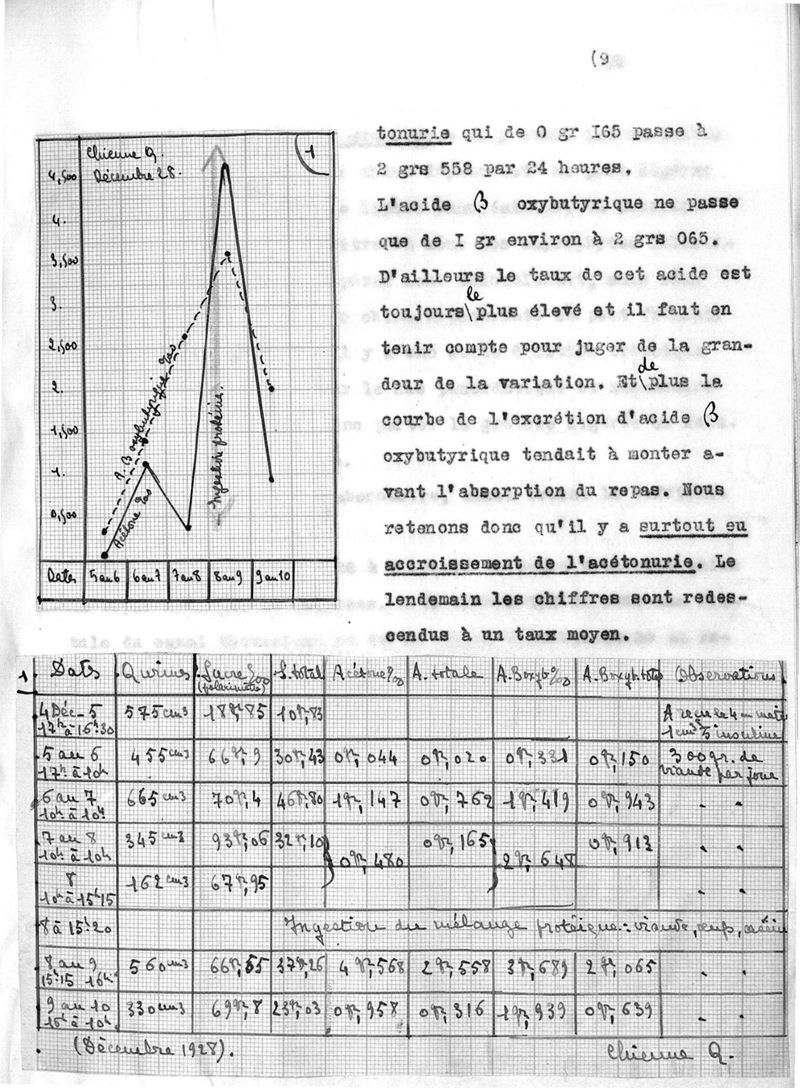 (9
tonurie qui de 0 gr I65 passe à
2 grs 558 par 24 heures.
L'acide β oxybutyrique ne passe
que de I gr environ à 2 grs 065.
D'ailleurs le taux de cet acide est
toujours\le plus élevé et il faut en
tenir compte pour juger de la gran-
deur de la variation. Et\de plus la
courbe de l'excrétion d'acide β
oxybutyrique tendait à monter a-
vant l'absorption du repas. Nous
retenons donc qu'il y a surtout eu
accroissement de l'acétonurie. Le
lendemain les chiffres sont redes-
cendus à un taux moyen.
Chienne Q.
Décembre 28.
1
4,500
4.
3,500
3.
2,500
2.
1,500
1.
0,500
A. B oxybutyrique %00
Acétone %00
Ingestion protéine.
Dates 5 au 6 6 au 7 7 au 8 8 au 9 9 au 10
1 Dates Q. urines Sucre %00 (polarimètre) S. total Acétone %00 A. totale A. Boxyb %00 A. Boxyb. totale Observations
4 Déc - 5 17h à 16h30 575 cm3 18gr,85 10gr,83 A reçu le 4 au matin 1 cm3 1/5 insuline
5 au 6 17h à 10h 455 cm3 66gr,9 30gr,43 0gr,044 0gr,020 0gr,331 0gr,150 300 gr. de viande par jour
6 au 7 10h à 10h 665 cm3 70gr,4 46gr,80 1gr,147 0gr,762 1gr,419 0gr,943 " "
7 au 8 10h à 10h 345 cm3 93gr,06 32gr,10 0gr,480 0gr,165 2gr,648 0gr,913 " "
8 10h à 15h15 162 cm3 67gr,95 " "
8 à 15h20 Ingestion du mélange protéique : viande, œufs, caséine
8 au 9 15h15 16h 560 cm3 66gr,55 37gr,26 4gr,568 2gr,558 3gr,689 2gr,065 " "
9 au 10 16h à 10h 330 cm3 69gr,8 23gr,03 0gr,958 0gr,316 1gr,939 0gr,639 " "
(Décembre 1928). Chienne Q.